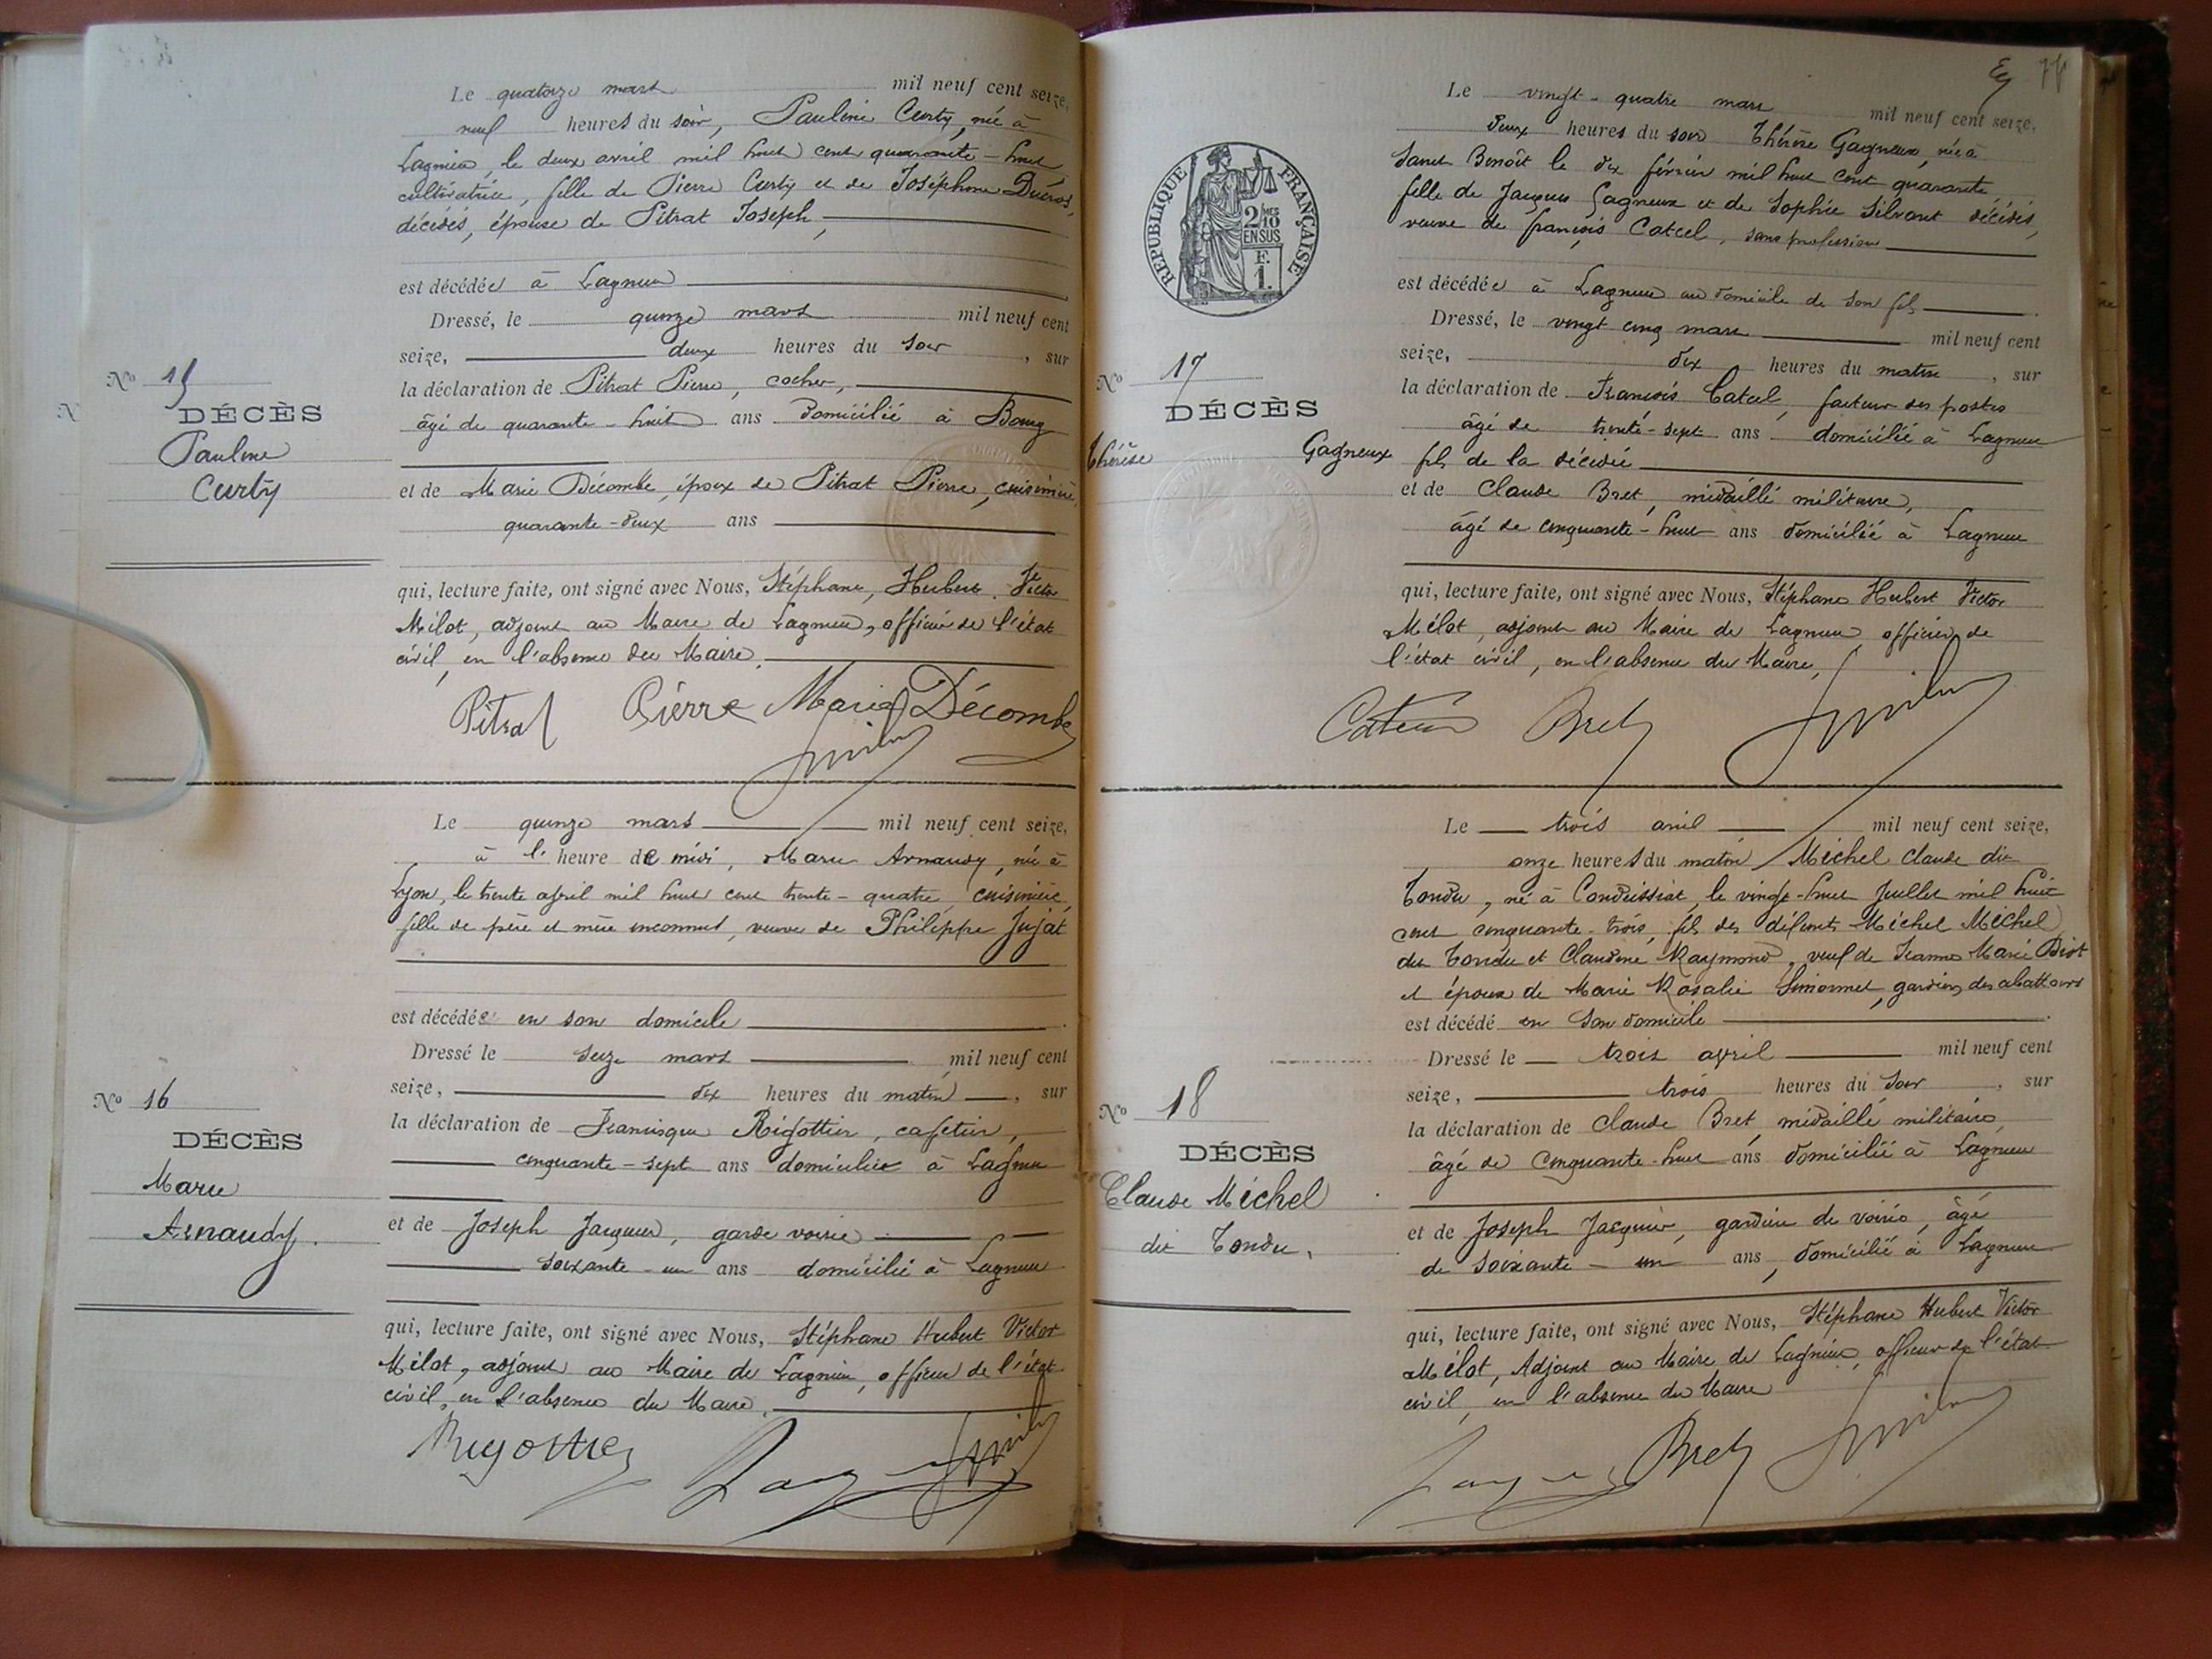 Le quatorze mars mil neuf cent seize,
neuf heures du soir, Pauline Curty, née à
Lagnieu, le deux avril mil huit cent quarante-huit
cultivatrice, fille de Pierre Curty et de Joséphine Ducros,
décédés, épouse de Pitrat Joseph,
est décédée à Lagnieu
Dressé, le quinze mars mil neuf cent
seize, deux heures du soir, sur
la déclaration de Pitrat Pierre, cocher,
âgé de quarante-huit ans domicilié à Bourg
et de Marie Décombe, époux de Pitrat Pierre, cuisinière
quarante-deux ans
qui, lecture faite, ont signé avec Nous, Stéphane, Hubert, Victor
Mélot, adjoint au Maire de Lagnieu, officier de l'état
civil, en l'absence du Maire.
Pitrat Pierre Marie Décombe
No 15
DÉCÈS
Pauline
Curty
Le quinze mars mil neuf cent seize,
à l'heure de midi, Marie Arnaudy, née à
Lyon, le trente avril mil huit cent trente-quatre, cuisinière,
fille de père et mère inconnus, veuve de Philippe Jujat
est décédée en son domicile
Dressé le seize mars mil neuf cent
seize, dix heures du matin, sur
la déclaration de Francisque Rigottier, cafetier,
cinquante-sept ans domicilié à Lagnieu
et de Joseph Jacquier, garde voirie
soixante-un ans domicilié à Lagnieu
qui, lecture faite, ont signé avec Nous, Stéphane Hubert Victor
Mélot, adjoint au Maire de Lagnieu, officier de l'état
civil, en l'absence du Maire.
Rigottier
No 16
DÉCÈS
Marie
Arnaudy.
Le vingt-quatre mars mil neuf cent seize,
deux heures du soir Thérèse Gagneux, née à
Saint Benoît le dix février mil huit cent quarante
fille de Jacques Gagneux et de Sophie Silvant décédés,
veuve de François Catcel, sans profession
est décédée à Lagnieu au domicile de son fils
Dressé, le vingt cinq mars mil neuf cent
seize, dix heures du matin, sur
la déclaration de François Catcel, facteur des postes
âgé de trente-sept ans domicilié à Lagnieu
fils de la décédée
et de Claude Bret, médaillé militaire,
âgé de cinquante-huit ans domicilié à Lagnieu
qui, lecture faite, ont signé avec Nous, Stéphane Hubert Victor
Mélot, adjoint au Maire de Lagnieu officier de
l'état civil, en l'absence du Maire,
Bret
RÉPUBLIQUE FRANÇAISE
2/10 MES
EN SUS
F.
1.
No 17
DÉCÈS
Thérèse Gagneux
Le trois avril mil neuf cent seize,
onze heures du matin Michel Claude dit
Tondu, né à Condeissiat, le vingt-huit Juillet mil huit
cent cinquante-trois, fils des défunts Michel Michel
dit Tondu et Claudine Raymond, veuf de Jeanne Marie Biot
et époux de Marie Rosalie Simonnet, gardien des abattoirs
est décédé en son domicile
Dressé le trois avril mil neuf cent
seize, trois heures du soir, sur
la déclaration de Claude Bret, médaillé militaire
âgé de cinquante-huit ans domicilié à Lagnieu
et de Joseph Jacquier, gardien de voirie, âgé
de soixante-un ans, domicilié à Lagnieu
qui, lecture faite, ont signé avec Nous, Stéphane Hubert Victor
Mélot, Adjoint au Maire de Lagnieu, officier de l'état
civil, en l'absence du Maire
Bret
No 18
DÉCÈS
Claude Michel
dit Tondu.